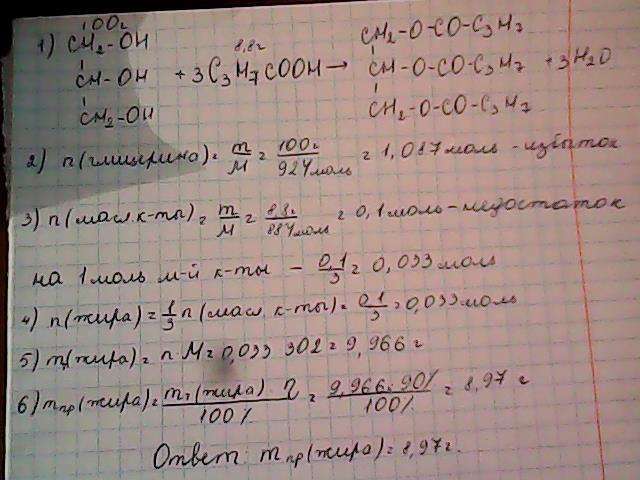 100г 8,8г
1) CH₂-OH CH₂-O-CO-C₃H₇
CH-OH + 3C₃H₇COOH → CH-O-CO-C₃H₇ + 3H₂O
CH₂-OH CH₂-O-CO-C₃H₇
2) n(глицерина) = m/M = 100г/92г/моль = 1,087 моль - избыток
3) n(масл. к-ты) = m/M = 8,8г/88г/моль = 0,1 моль - недостаток
на 1 моль м-й к-ты - 0,1/3 = 0,033 моль
4) n(жира) = 1/3 n(масл. к-ты) = 0,1/3 = 0,033 моль
5) m(жира) = n·M = 0,033·302 = 9,966 г
6) mпр(жира) = mт(жира)·η/100% = 9,966·90%/100% = 8,97 г
Ответ: mпр(жира) = 8,97г.